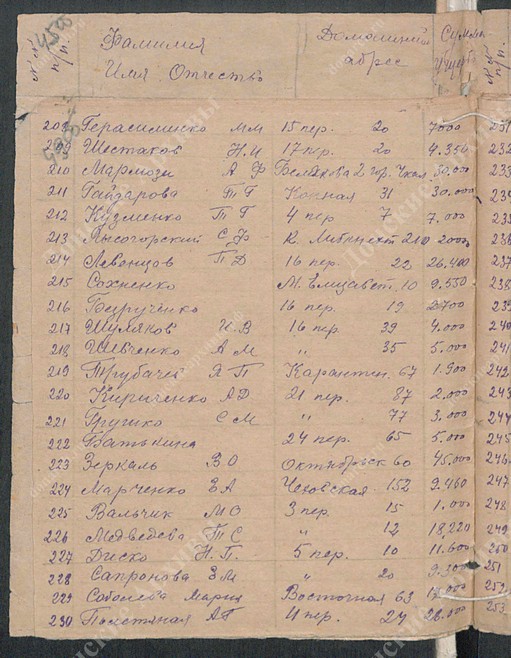 №№ п/п. Фамилия Имя Отчество Домашний адрес Сумма ущерба №№ п/п.
208 Герасименко М М 15 пер. 20 7000 231
209 Шестаков Н И 17 пер. 20 4.350 232
210 А Ф 50.000 233
211 Гайдарова Т Г Конная 31 30.000 234
212 Кузменко Т Г 4 пер 7 7.000 235
213 Лысогорский С Ф К. Либкнехт 210 2000 236
214 Левонцов П Д 16 пер. 22 26.400 237
215 Сохненко М. Елизавет. 10 9.550 238
216 16 пер. 19 2700 239
217 Шумаков И. В 16 пер. 39 4.000 240
218 Шевченко А М " 35 5.000 241
219 Трубачев Я П Карантин. 67 1.900 242
220 Кириченко А Д 21 пер. 87 2.000 243
221 Грушко С М " 77 3.000 244
222 Батькина 24 пер. 65 5.000 245
223 Зеркаль В О Октябрьск 60 45.000 246
224 Марченко З А Чеховская 152 9.460 247
225 Вальчик М О 3 пер. 15 1.000 248
226 Медведева Т С " 12 18,220 249
227 Диско Н. П. 5 пер. 10 11.600 250
228 Сапронова З М " 20 251
229 Соболева Мария Восточная 63 252
230 Полстяная А Г 11 пер. 24 26.000 253